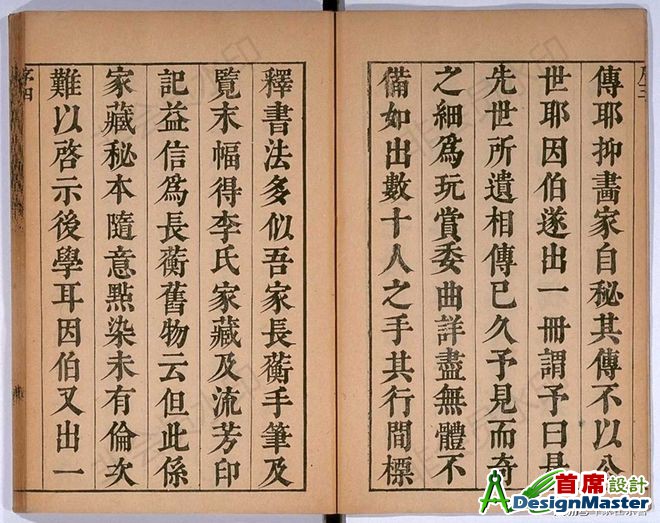 傳耶抑畫家自秘其傳不以公
世耶因伯遂出一冊謂予曰是
先世所遺相傳已久予見而奇
之細爲玩賞委曲詳盡無體不
備如出數十人之手其行間標
釋書法多似吾家長蘅手筆及
覽末幅得李氏家藏及流芳印
記益信爲長蘅舊物云但此係
家藏秘本隨意點染未有倫次
難以啓示後學耳因伯又出一
序四
首席設計
ADesignMaster